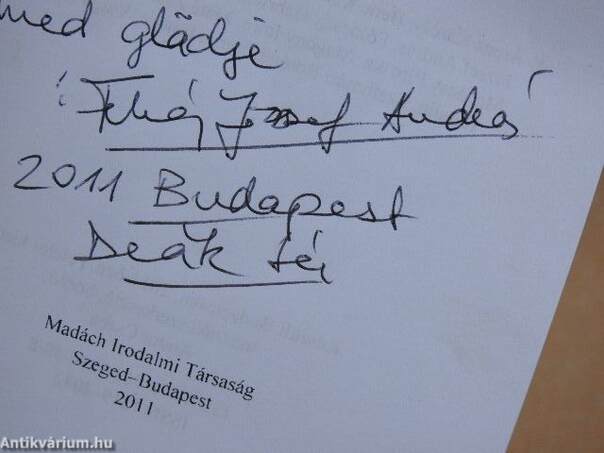 med glädje
Fehér József András
2011 Budapest
Deák tér
Madách Irodalmi Társaság
Szeged–Budapest
2011
Antikvárium.hu